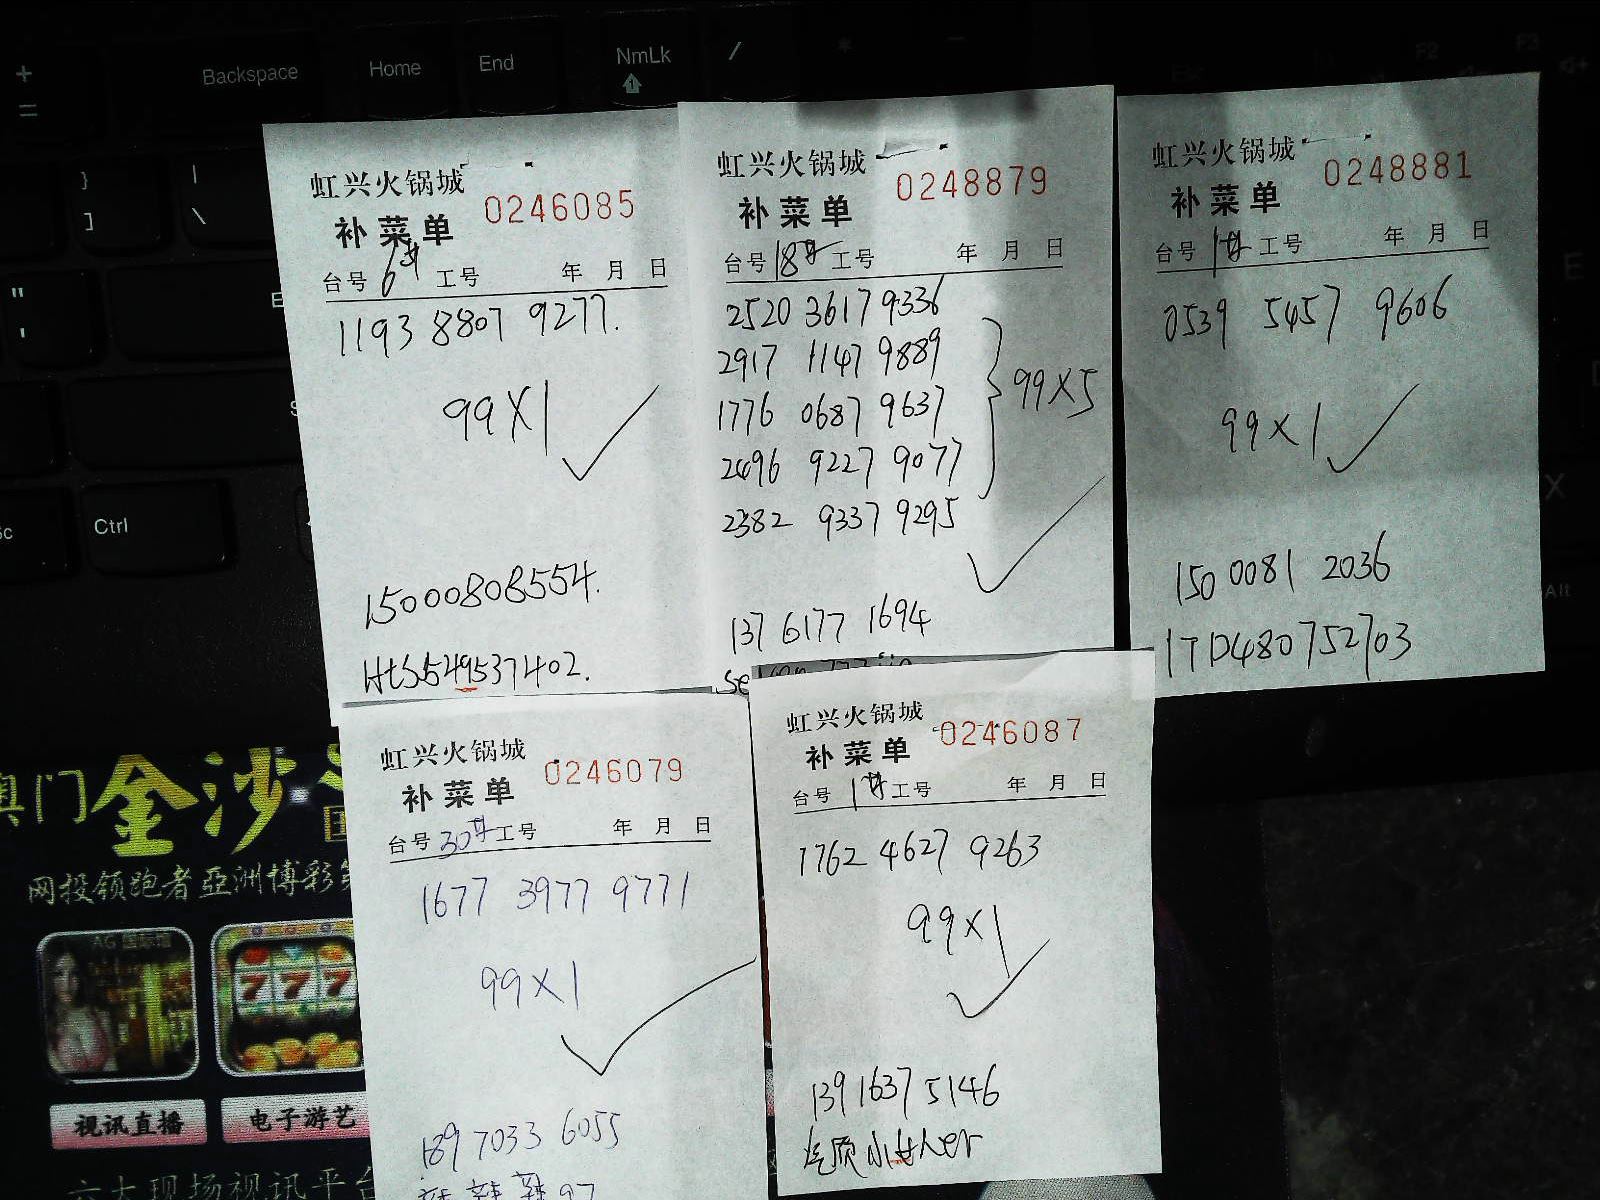 +
=
Backspace
Home
End
NmLk
/
*
-
F2
F3
}
]
|
\
"
'
Ctrl
Alt
E
X
虹兴火锅城
补菜单 0246085
台号 6# 工号 年 月 日
1193 8807 9277.
99X1
15000808554.
HtS549537402.
虹兴火锅城
补菜单 0248879
台号 18# 工号 年 月 日
2520 3617 9336
2917 1147 9889
1776 0687 9637
2496 9227 9077
2382 9337 9295
99X5
137 6177 1694
虹兴火锅城
补菜单 0248881
台号 1# 工号 年 月 日
0539 5457 9606
99X1
150 0081 2036
17D480752703
虹兴火锅城
补菜单 0246079
台号 30# 工号 年 月 日
1677 3977 9771
99X1
189 7033 6055
辣辣辣97
虹兴火锅城
补菜单 0246087
台号 1# 工号 年 月 日
1762 4627 9263
99X1
139 1637 5146
气质小女人er
澳门金沙
网投领跑者亞洲博彩
AG 国际馆
777
视讯直播
电子游艺
六大现场视讯平台